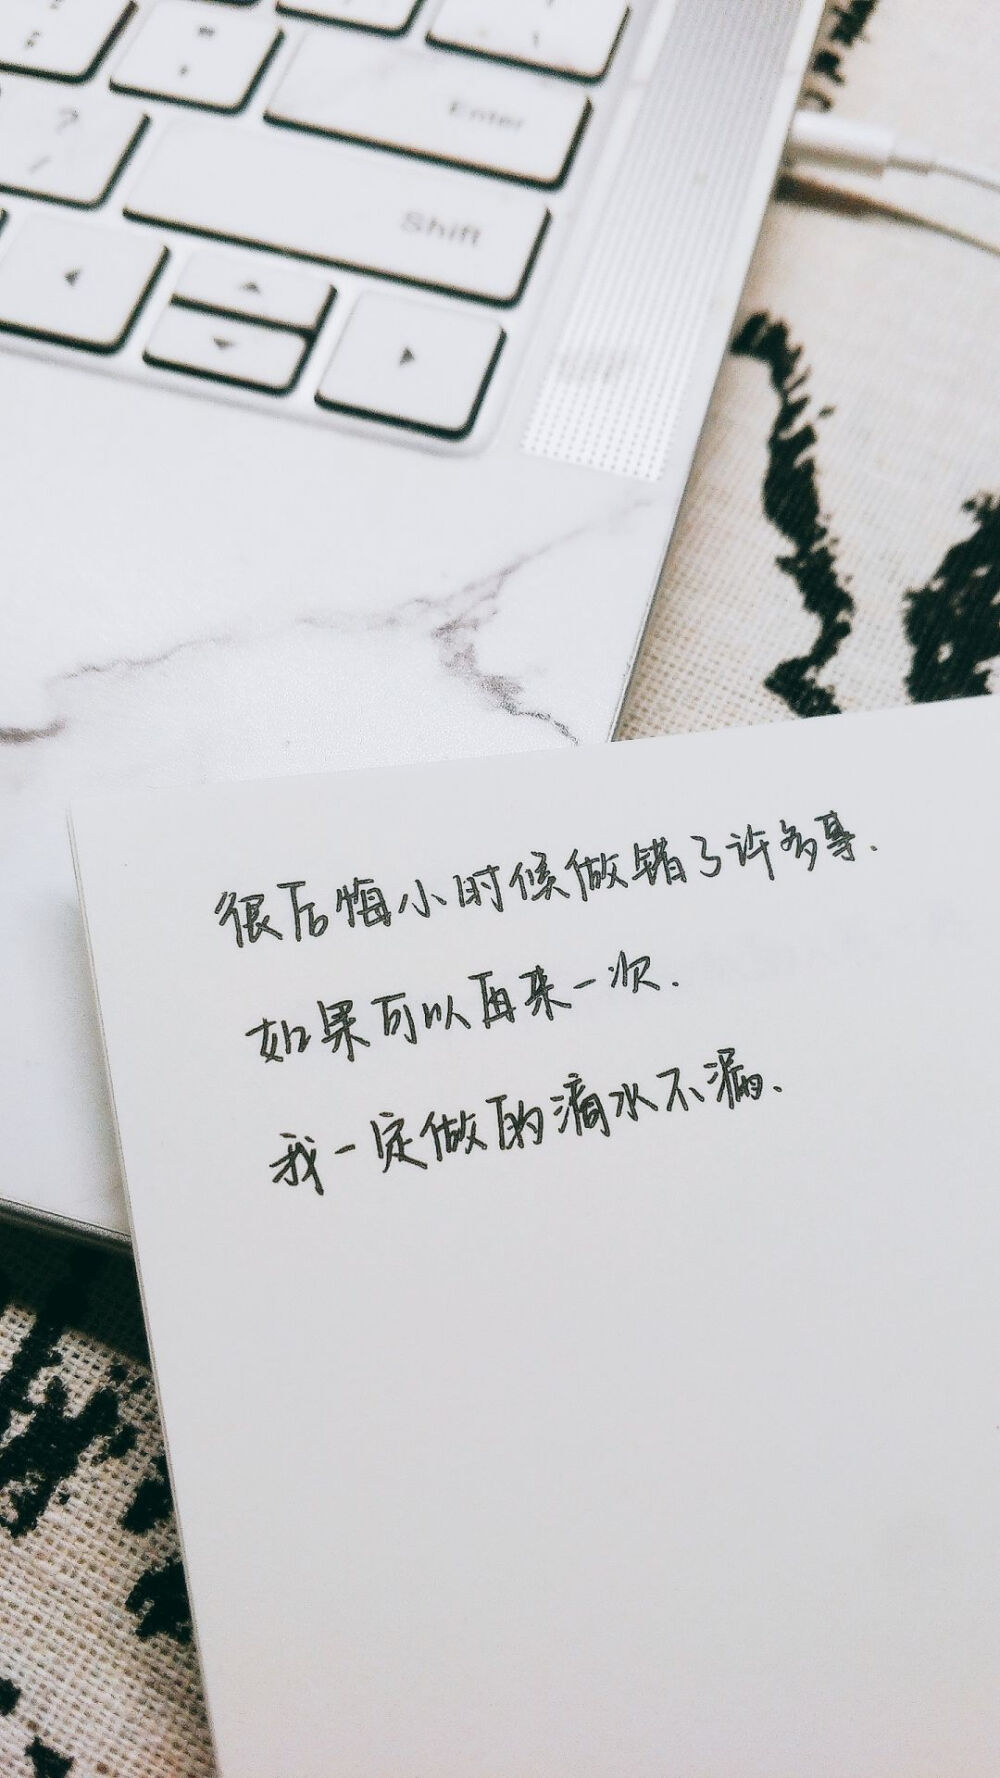 Enter
Shift
很后悔小时候做错了许多事.
如果可以再来一次.
我一定做的滴水不漏.